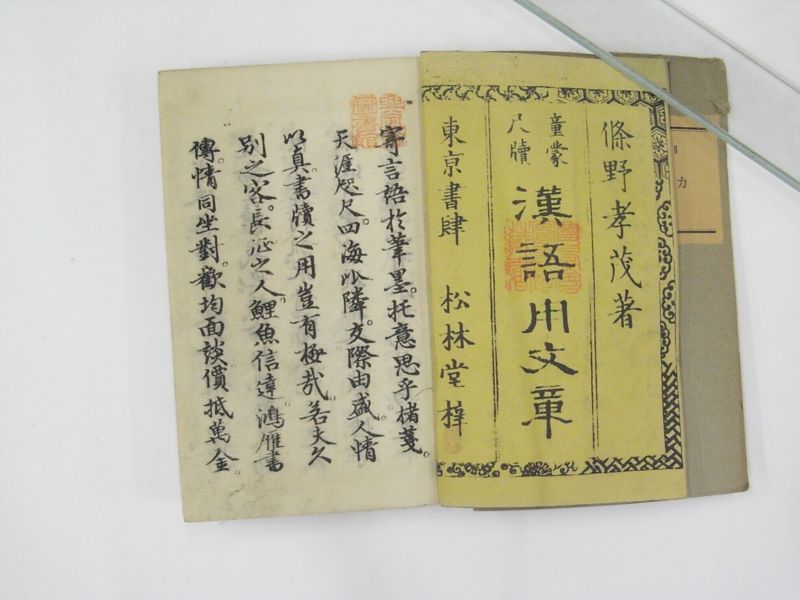 條野孝茂著
童蒙
尺牘
漢語用文章
東京書肆 松林堂梓
寄言語於筆墨。托意思乎楮箋。
天涯咫尺。四海比隣。交際由盛。人情
以真。書牘之用豈有極哉。若夫久
別之客。長征之人。鯉魚信達。鴻雁書
傳。情同坐對。歡均面談。價抵萬金。
カ